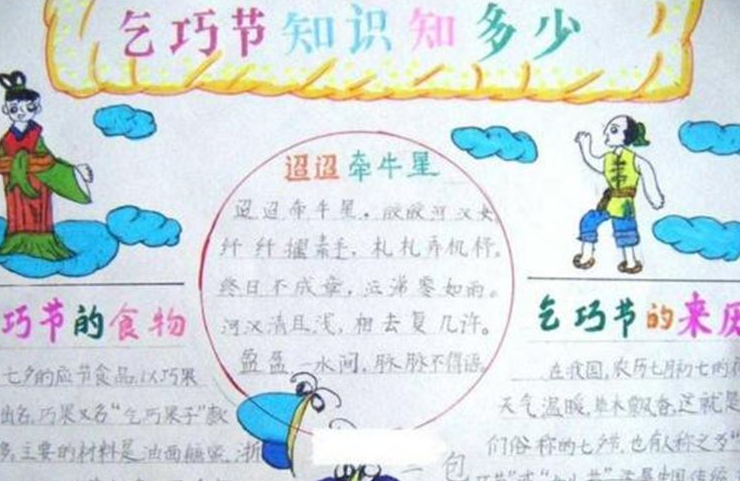 乞巧节知识知多少
迢迢牵牛星
迢迢牵牛星,皎皎河汉女
纤纤擢素手,札札弄机杼。
终日不成章,泣涕零如雨。
河汉清且浅,相去复几许。
盈盈一水间,脉脉不得语。
巧节的食物
七夕的应节食品,以巧果
出名,巧果又名“乞巧果子”款
多。主要的材料是油面
乞巧节的来历
在我国,农历七月初七的
天气温暖,草木飘香,这就是
们俗称的七夕节,也有人称之为“
包